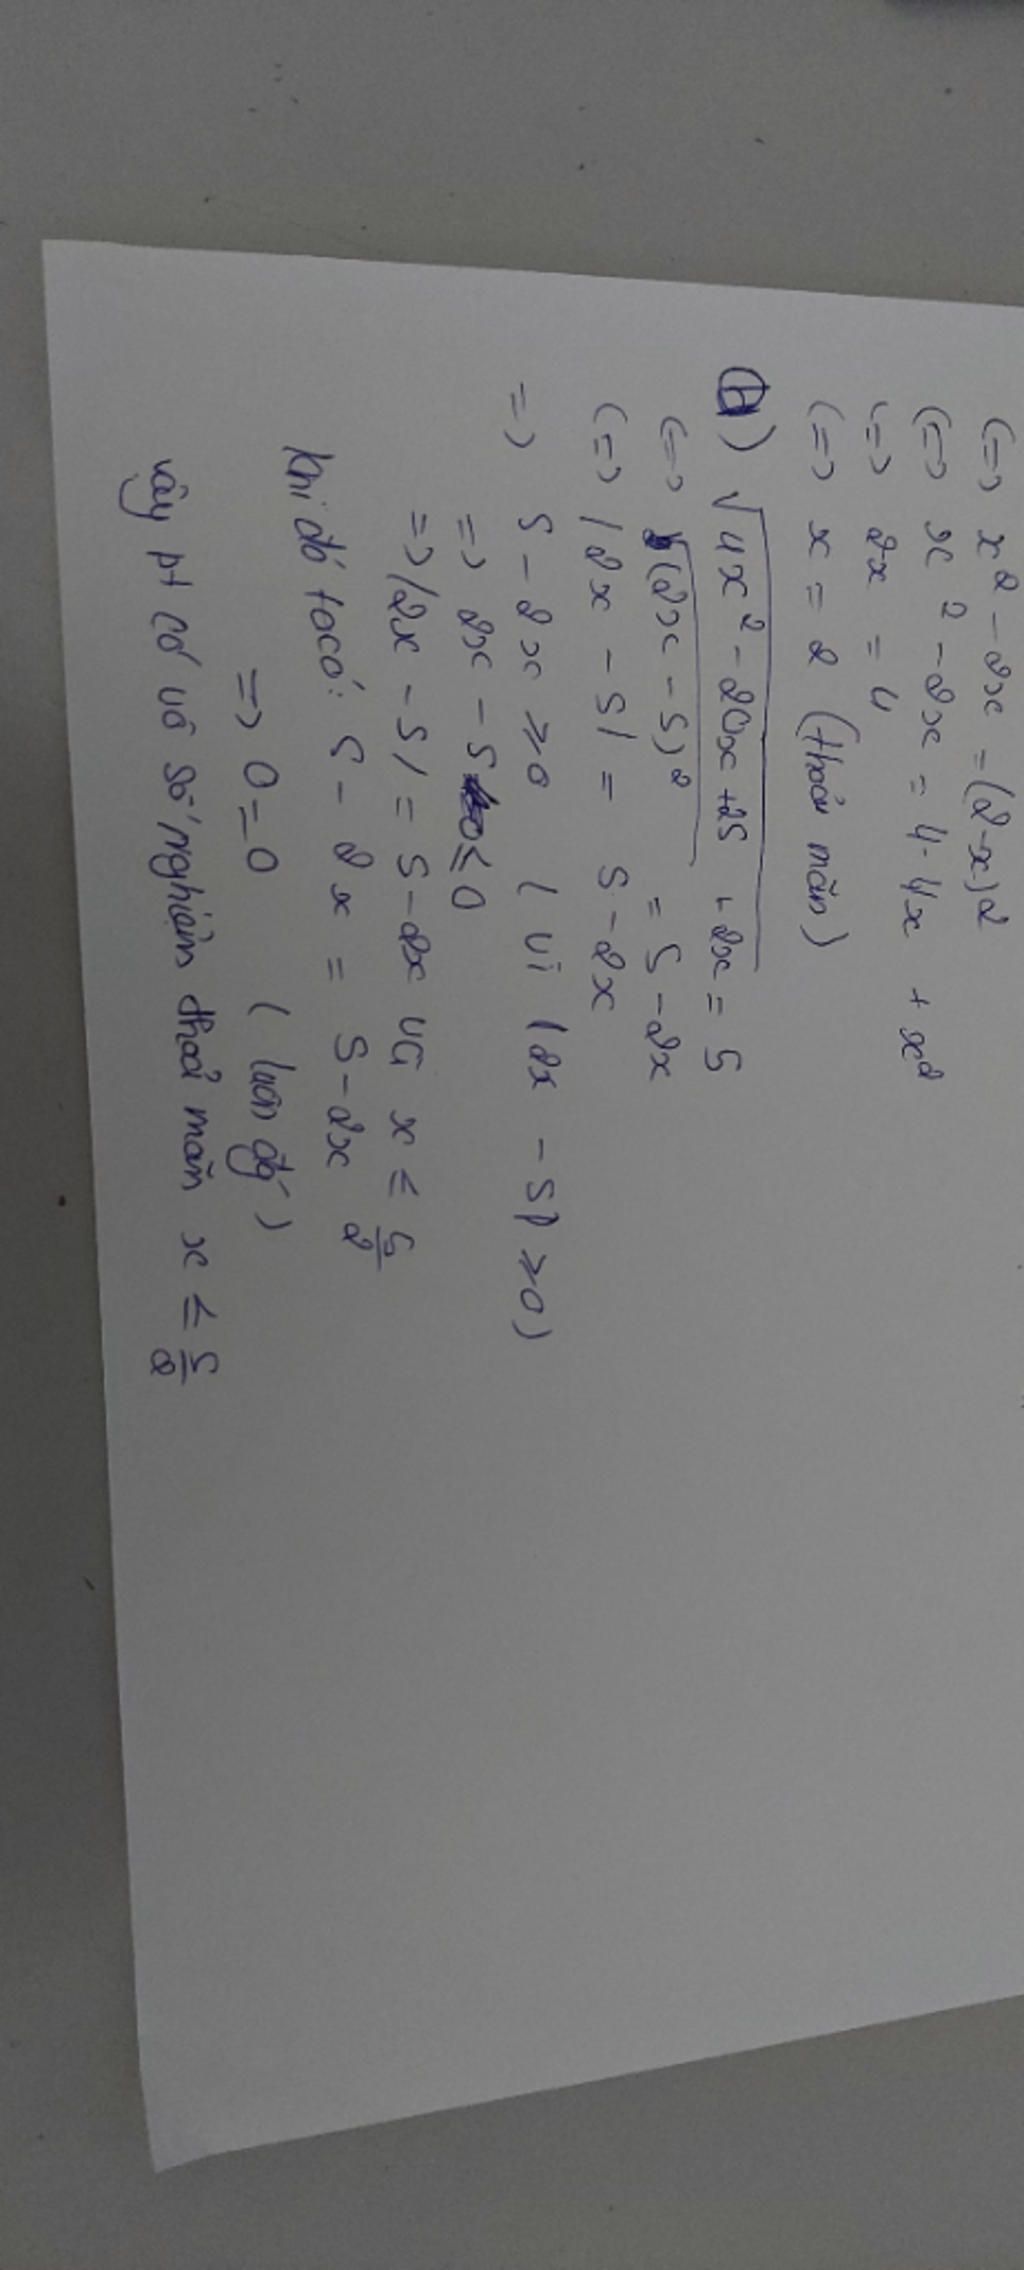 <=> x² - 2x = (2-x)²
<=> x² - 2x = 4 - 4x + x²
<=> 2x = 4
<=> x = 2 (thoả mãn)
b) √4x² - 20x + 25 + 2x = 5
<=> √(2x - 5)² = 5 - 2x
<=> |2x - 5| = 5 - 2x
=> 5 - 2x ≥ 0 (vì |2x - 5| ≥ 0)
=> 2x - 5 ≤ 0
=> |2x - 5| = 5 - 2x và x ≤ 5/2
khi đó ta có: 5 - 2x = 5 - 2x
=> 0 = 0 (luôn đg)
vậy pt có vô số nghiệm thoả mãn x ≤ 5/2